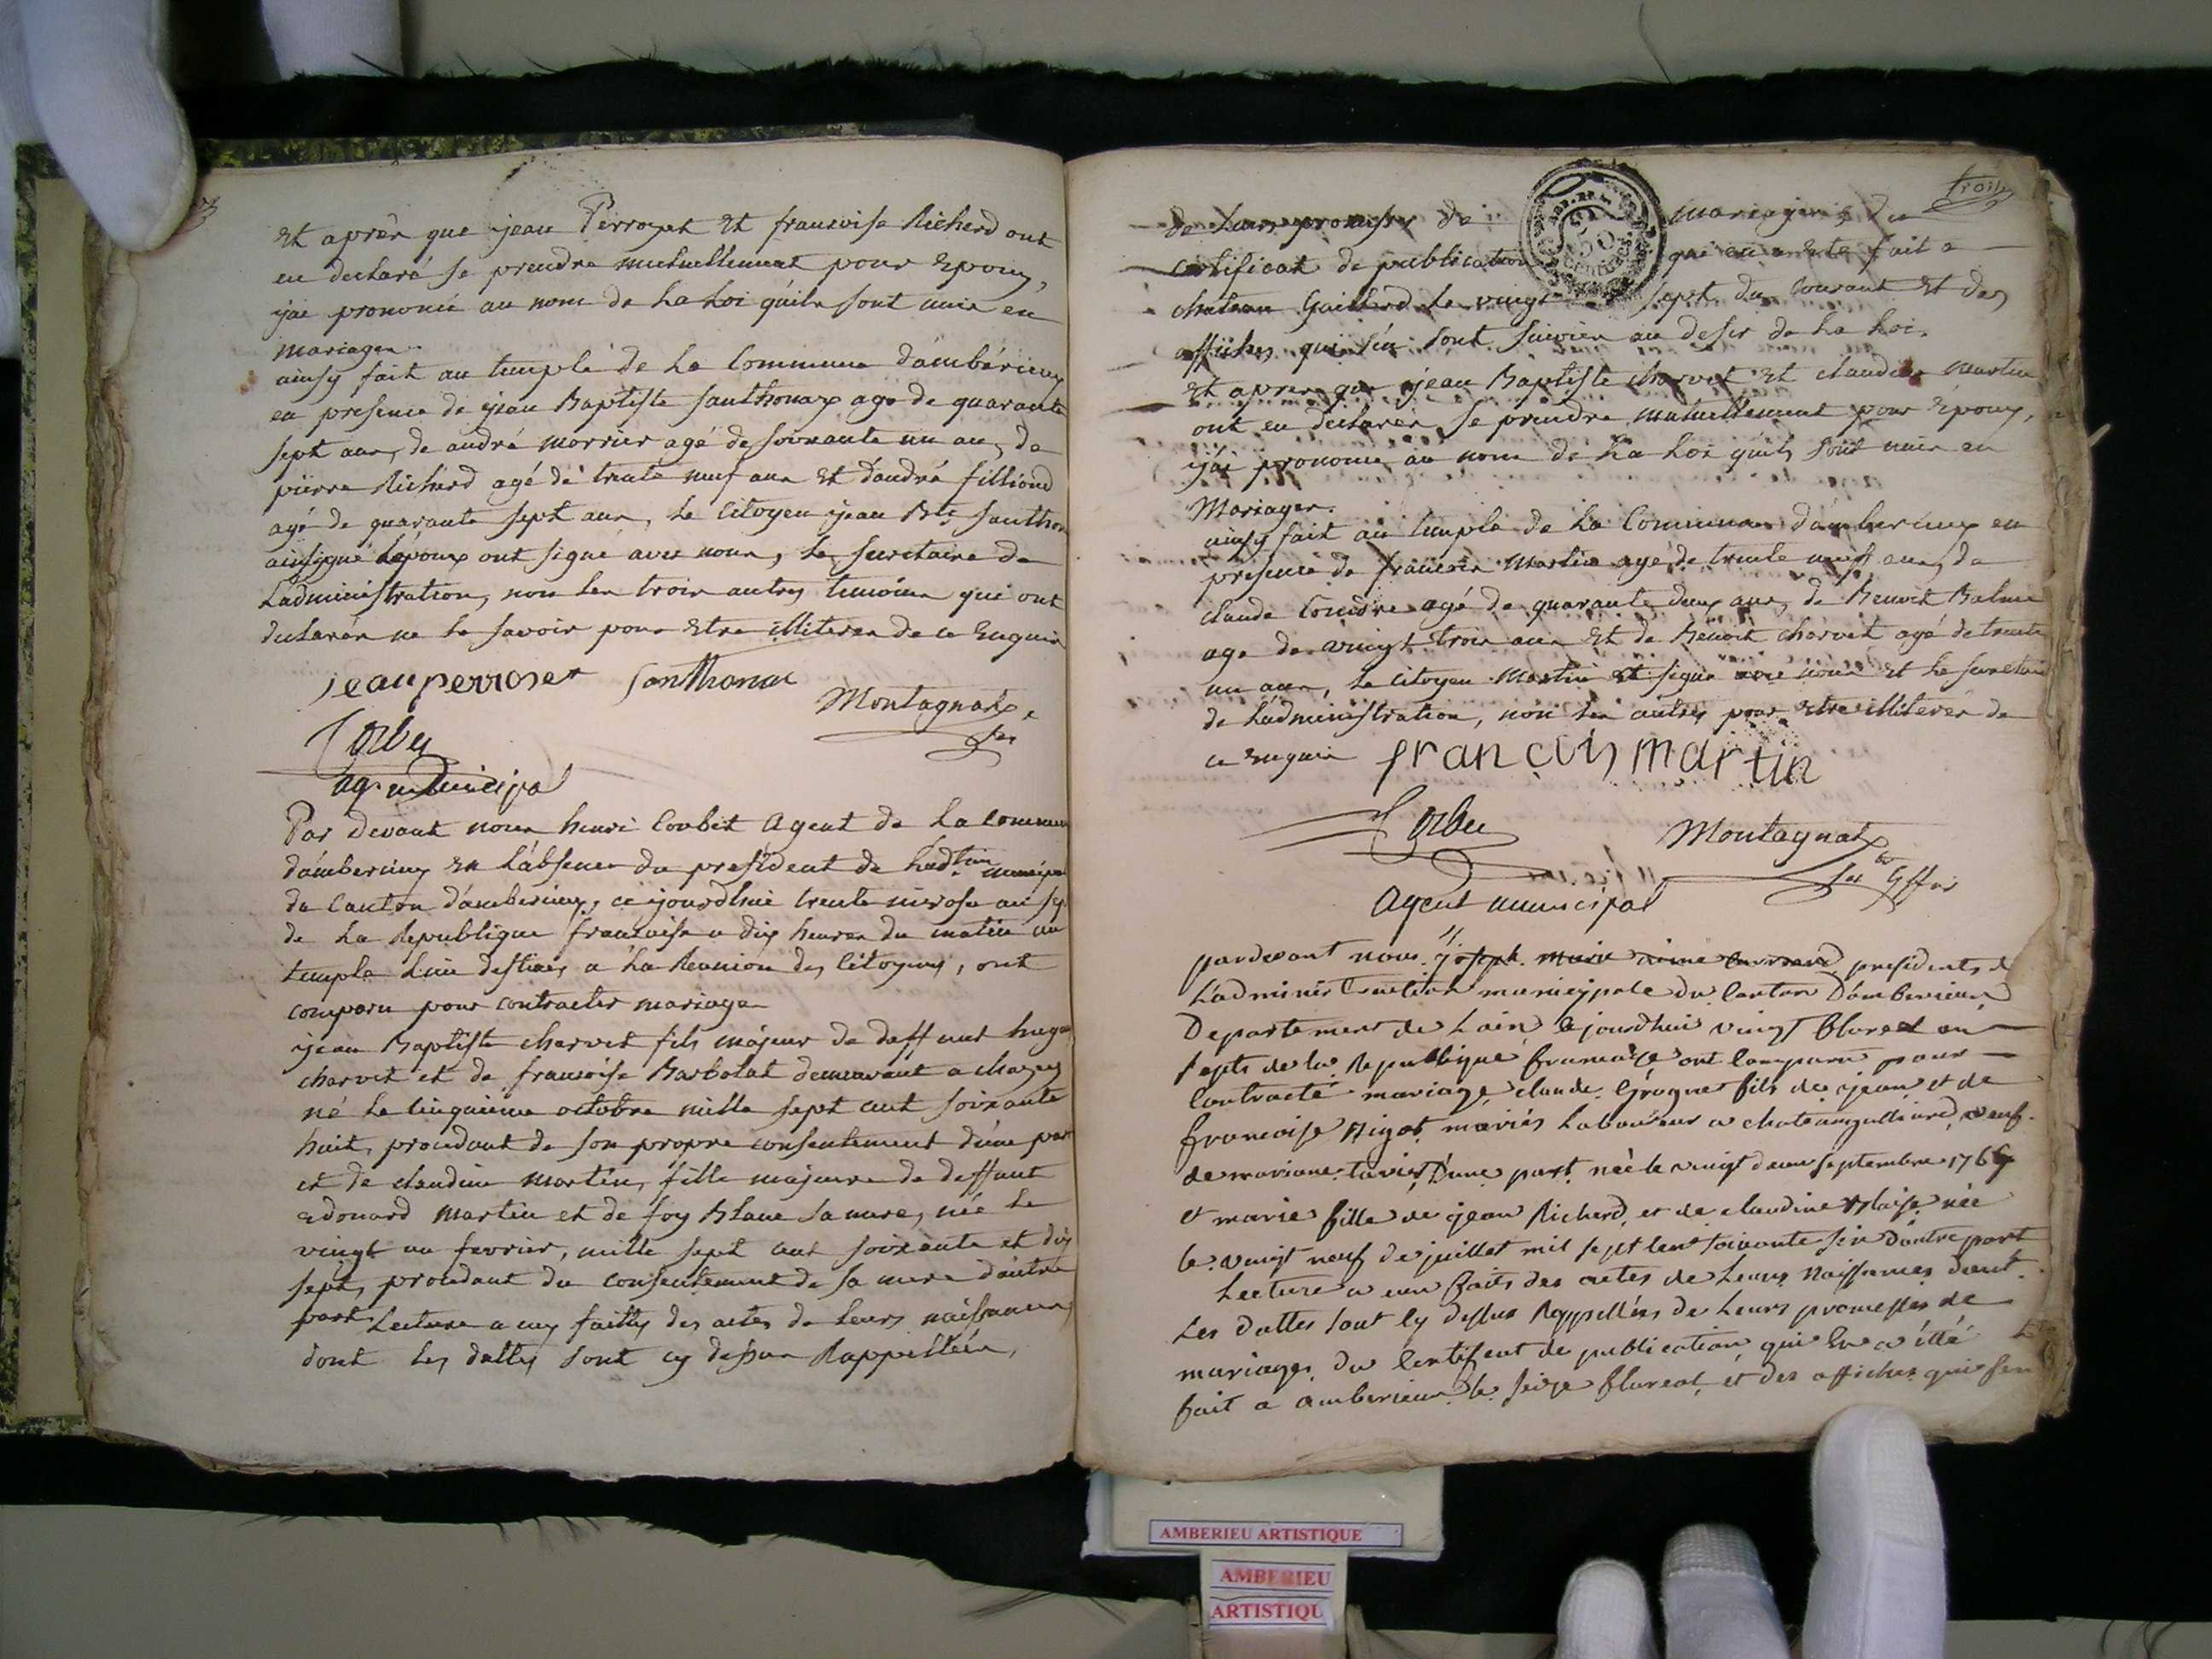 et aprèr que jean Perrozet et francoise Richerd ont
eu declaré se prendre mutuellement pour epoux,
j'ai prononcé au nom de la Loi qu'ils sont unis en
mariager
ainsy fait au temple de la Commune d'ambérieux
en présence de jean Baptiste Santhonax age de quarante
sept ans, de andré morrier agé de soixante un an, de
pierre Richerd agé de trente neuf ans et d'andré filliond
agé de quarante sept ans, le Citoyen jean Bte Santhon
l'epoux ont signé avec nous, le secretaire de
L'administration, non les trois autres temoins qui ont
declarér ne le savoir pour etre illiterer de ce enquir
jean perroset Santhonax
Montagnat
Ser
Corbet
ag. municipal
Par devant nous henri Corbet Agent de la Commune
d'amberieux en l'absence du president de l'adtion municipa
du Canton d'amberieux, ce jourd'hui trente nivose an sept
de la Republique francoise a dix heures du matin au
temple lieu destiner a la Reunion des Citoyens, ont
comparu pour contracter mariage
jean Baptiste charvet fils majeur de deffunt hugo
charvet et de francoise Barbolat demeurant a chazey
né le cinquieme octobre mille sept cent soixante
huit, procedant de son propre consentement d'une part
et de claudine martin, fille majeure de deffunt
edouard martin et de foy Blanc sa mere, née le
vingt un fevrier, mille sept cent soixante et dix
sept, procedant du consentement de sa mere d'autre
part Lecture a eu faitte des actes de leurs naissances
dont les dattes sont cy dessus Rappelléer,
trois
de leurs promesses de mariager, du
certificat de publication qui en a ete fait a
chateau Gaillard le vingt sept du courant et des
affiches qui s'en sont suivier au desir de la Loi.
et aprer que jean Baptiste charvet et claudine martin
ont eu declarér se prendre mutuellement pour epoux,
j'ai prononcé au nom de la Loi qu'ils sont unis en
Mariager.
ainsy fait au temple de la Commune d'amberieux en
presence de francois Martin agé de trente neuf ans, de
claude Convert agé de quarante deux ans, de Benoit Balme
age de vingt trois ans et de Benoit charvet agé de trente
un ans, le Citoyen Martin et signé avec nous et le secretaire
de L'administration, non les autres pour etre illiterér de
ce enquir françois martin
Corbet
Montagnat
Ser Greffier
Agent municipal
pardevant nous joseph marie president de
L'administration municipale du Canton D'amberieux
Departement de Lain, ce jourdhui vingt floreal an
septs de la Republique francaise ont comparu pour
Contracté mariage claude Grognet fils de jean et de
francoise Rigot, mariés Laboureur a chateaugalliard, veuf
de mariane tavier, D'une part née le vingt deux septembre 1767
et marie fille de jean Richerd, et de claudine Blaise née
le vingt neuf de juillet mil sept cent soixante six d'autre part
Lecture a eue faits des actes de Leurs Naissances dont
Les dattes sont Cy dessus Rappellées de Leurs promesses de
mariages, du Certificat de publication qui En a été
fait a amberieux le seize floreal, et des affiches qui sen
AMBERIEU ARTISTIQUE
AMBERIEU
ARTISTIQU